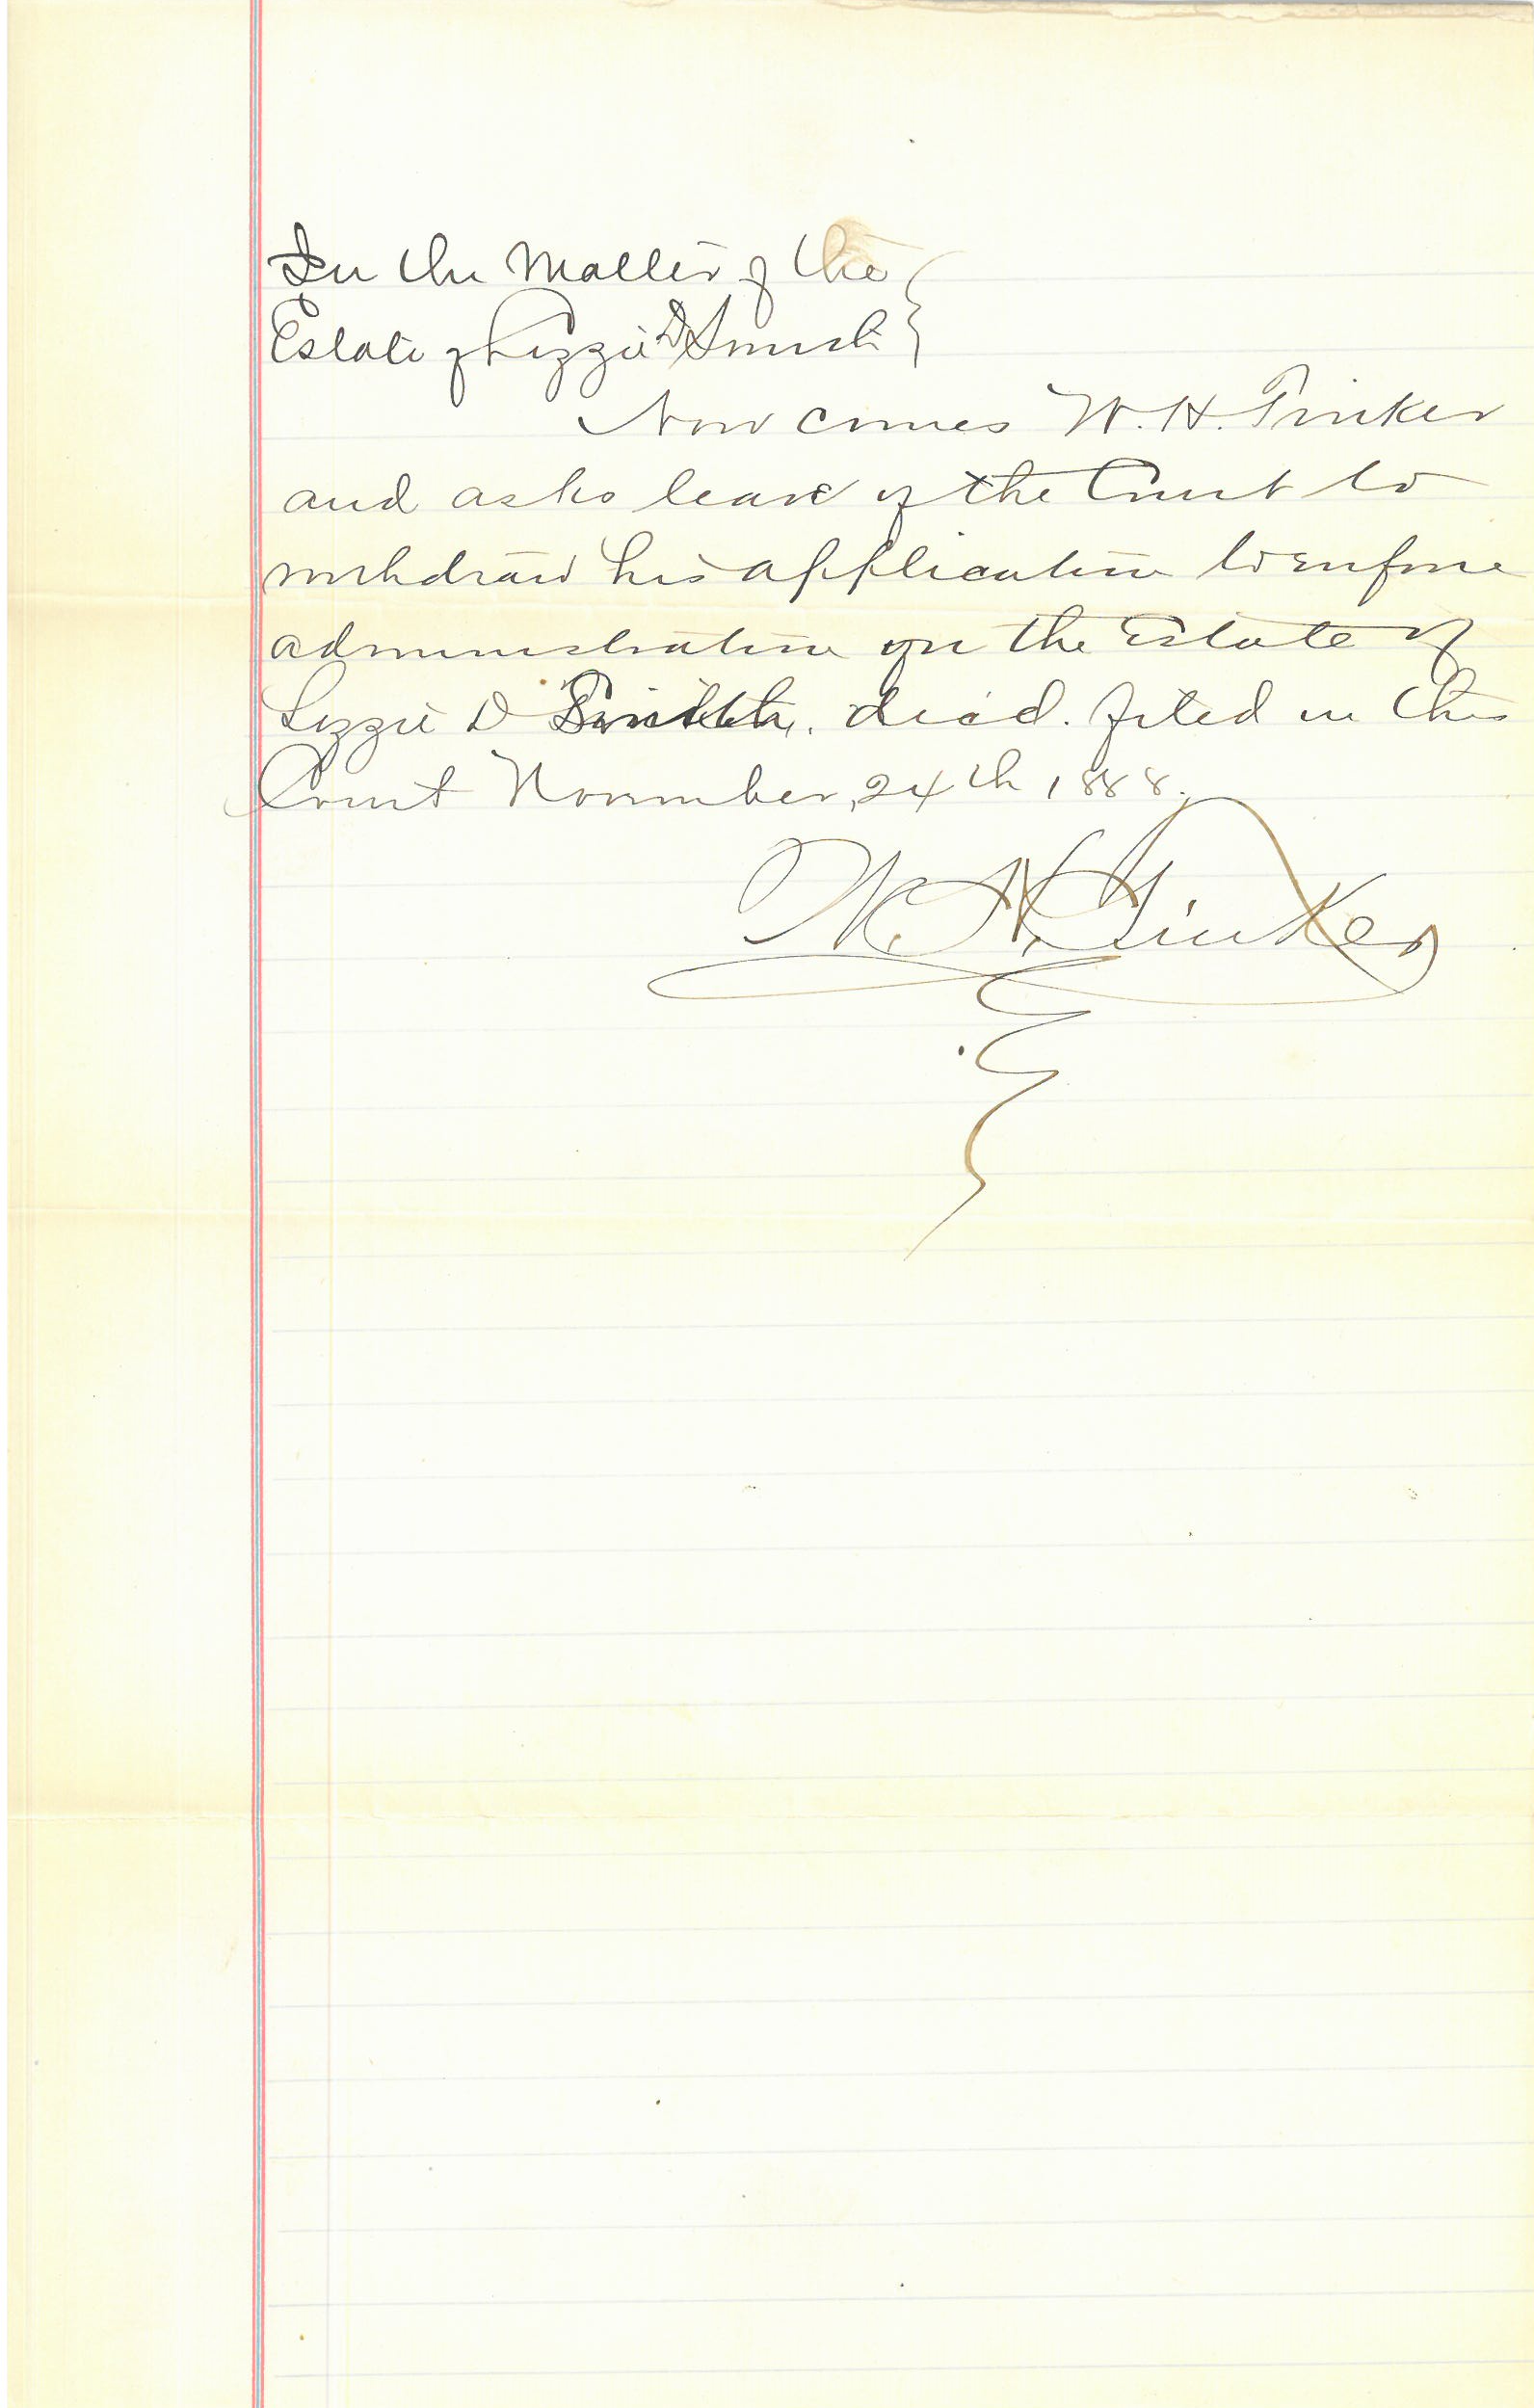 In the Matter of the
Estate of Lizzie D Smith
Now comes W. H. Tinker
and asks leave of the Court to
withdraw his application to enforce
administration on the Estate of
Lizzie D Smith. dec'd. filed in this
Court November, 24th 1888.
W. H. Tinker